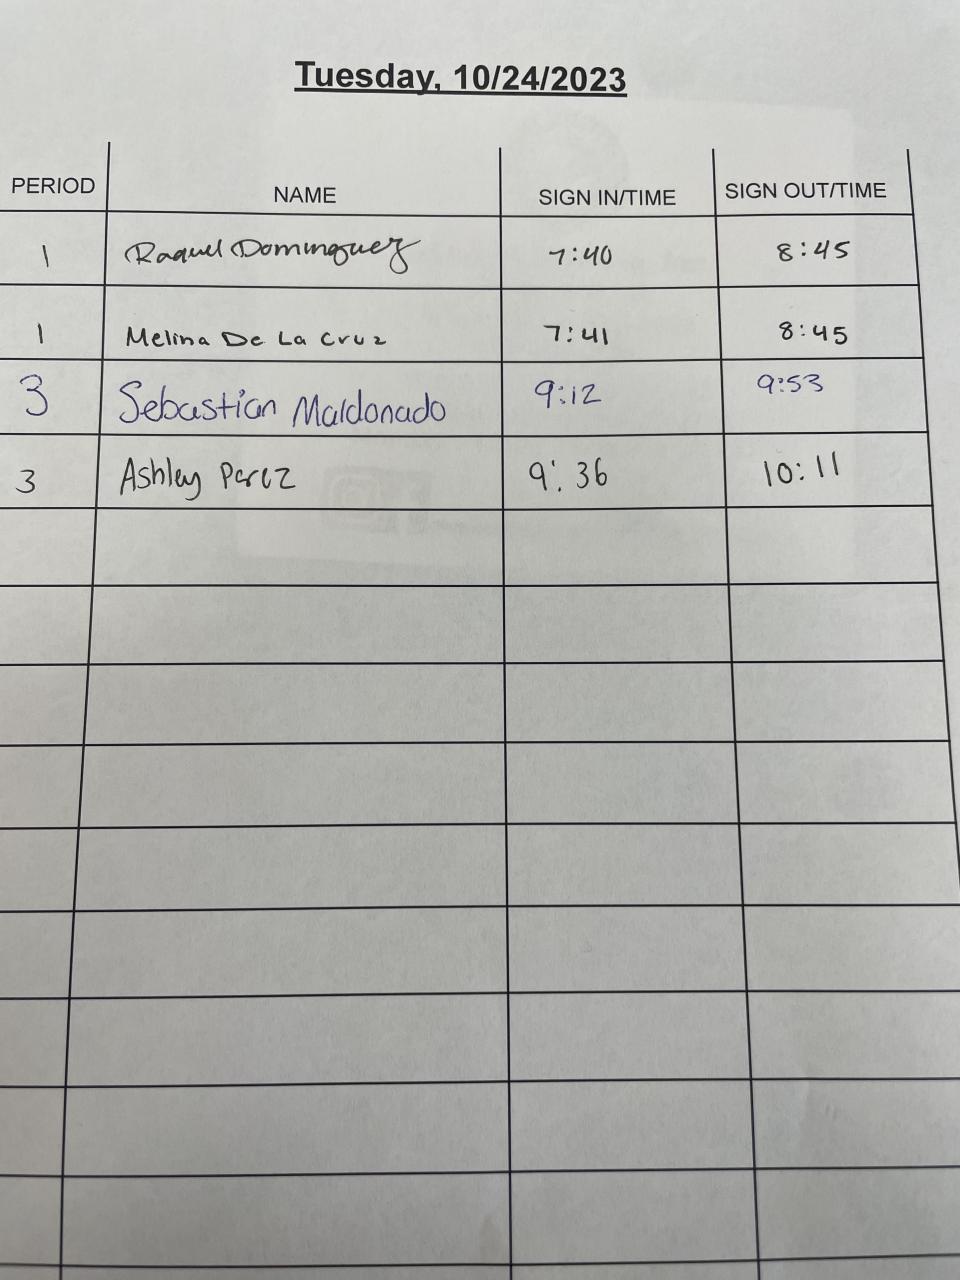 Tuesday, 10/24/2023
PERIOD NAME SIGN IN/TIME SIGN OUT/TIME
1 Raquel Dominguez 7:40 8:45
1 Melina De La Cruz 7:41 8:45
3 Sebastian Maldonado 9:12 9:53
3 Ashley Perez 9:36 10:11